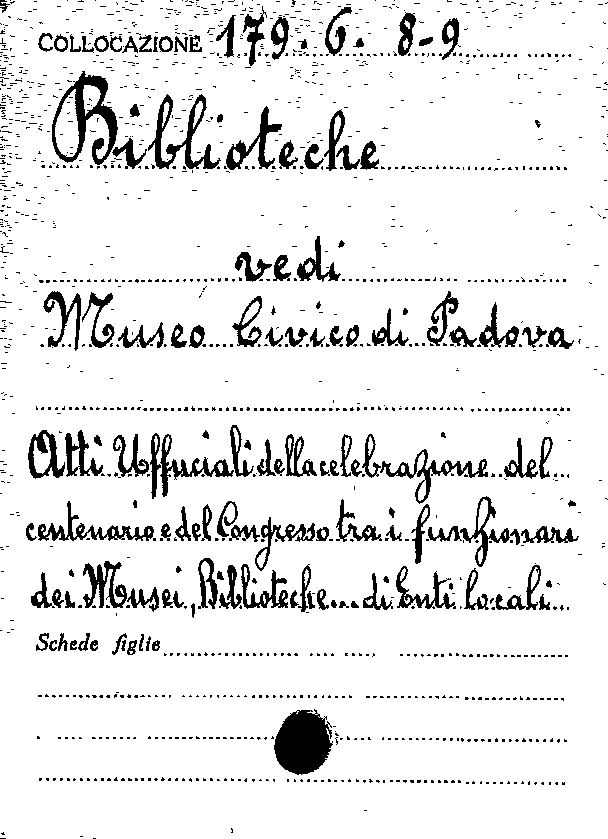 COLLOCAZIONE 179. 6. 8-9
Biblioteche
vedi
Museo Civico di Padova
Atti Uffuciali della celebrazione del
centenario e del Congresso tra i funzionari
dei Musei, Biblioteche... di Enti locali
Schede figlie